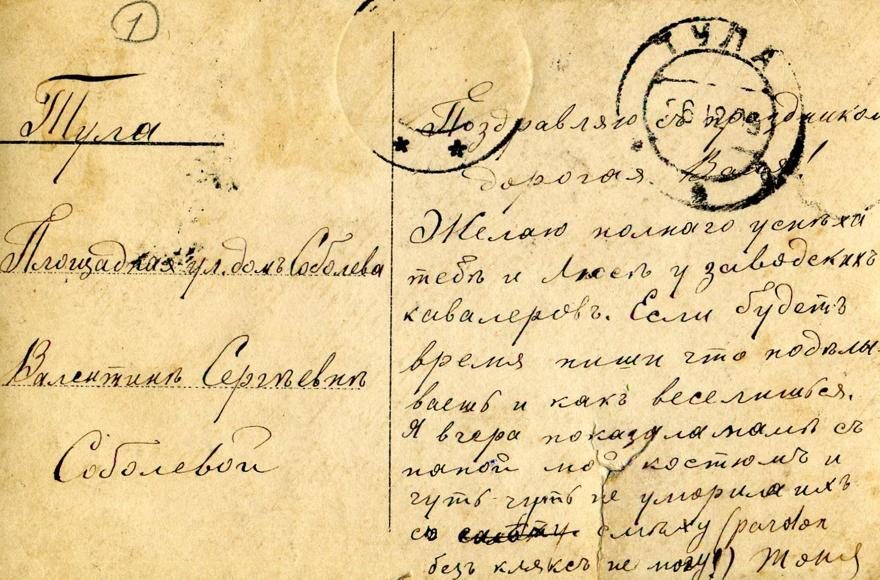 1
Тула
Площадная ул. домъ Соболева
Валентинѣ Сергѣевнѣ
Соболевой
ТУЛА
Поздравляю съ праздникомъ
дорогая Валя!
Желаю полнаго успѣха
тебѣ и Люсѣ у заводскихъ
кавалеровъ. Если будетъ
время пиши что подѣлы-
ваешь и какъ веселишься.
Я вчера показала мамѣ съ
папой мой костюмъ и
чуть-чуть не уморила ихъ
со смѣху (pardon
безъ кляксъ не могу!) Тоня